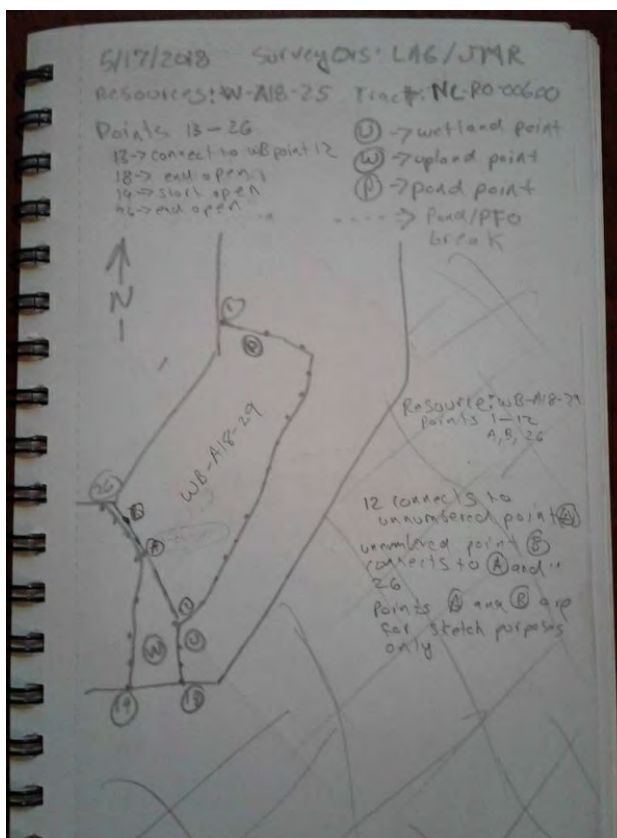 5/17/2018 Surveyors: LAG/JTMR
Resources: W-A18-25 Tract#: NC-RO-006.00
Points 13-26
13→connect to WB point 12
18→ end open
19→ start open
26→ end open
(U)→wetland point
(W)→upland point
(P)→pond point
----> Pond/PFO break
N
1
(P)
WB-A18-29
Resource: WB-A18-29
Points 1-12
A, B, 26
26
(B)
(A)
12 connects to
unnumbered point (A)
unnumbered point (B)
connects to (A) and
26
Points (A) and (B) are
for sketch purposes
only
(W)
(U)
19
18